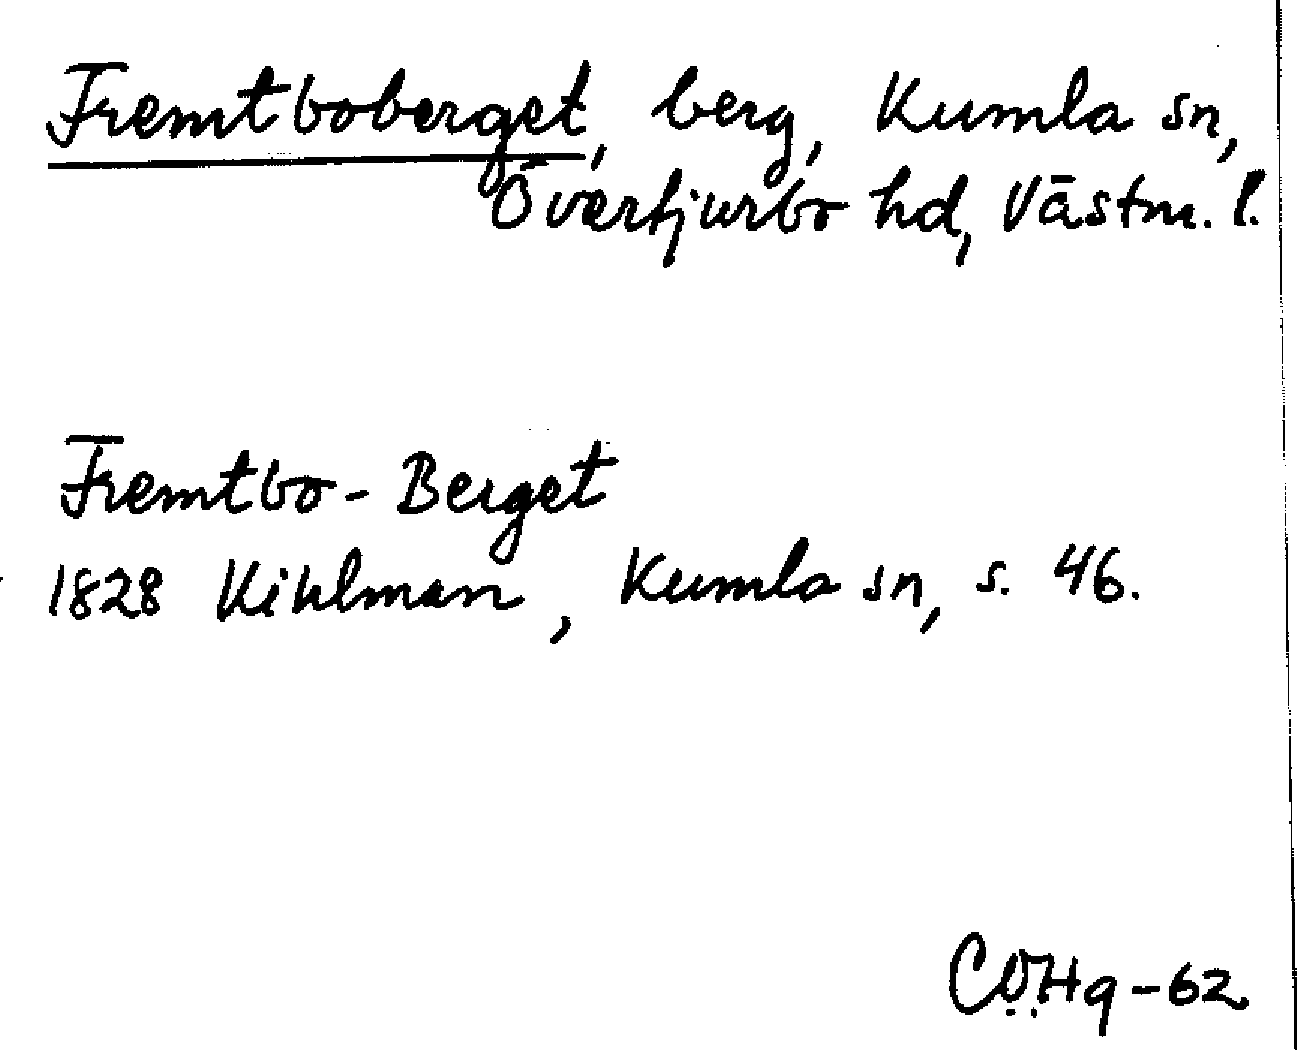 Fremtboberget, berg, Kumla sn,
Övertjurbo hd, Västm. l.
Fremtbo-Berget
1828 Kihlman, Kumla sn, s. 46.
CÖHq-62